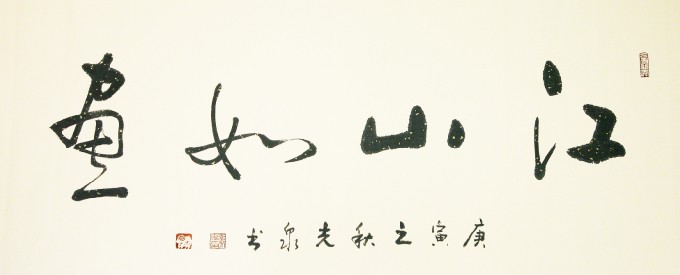 江山如畫
庚寅之秋先泉书